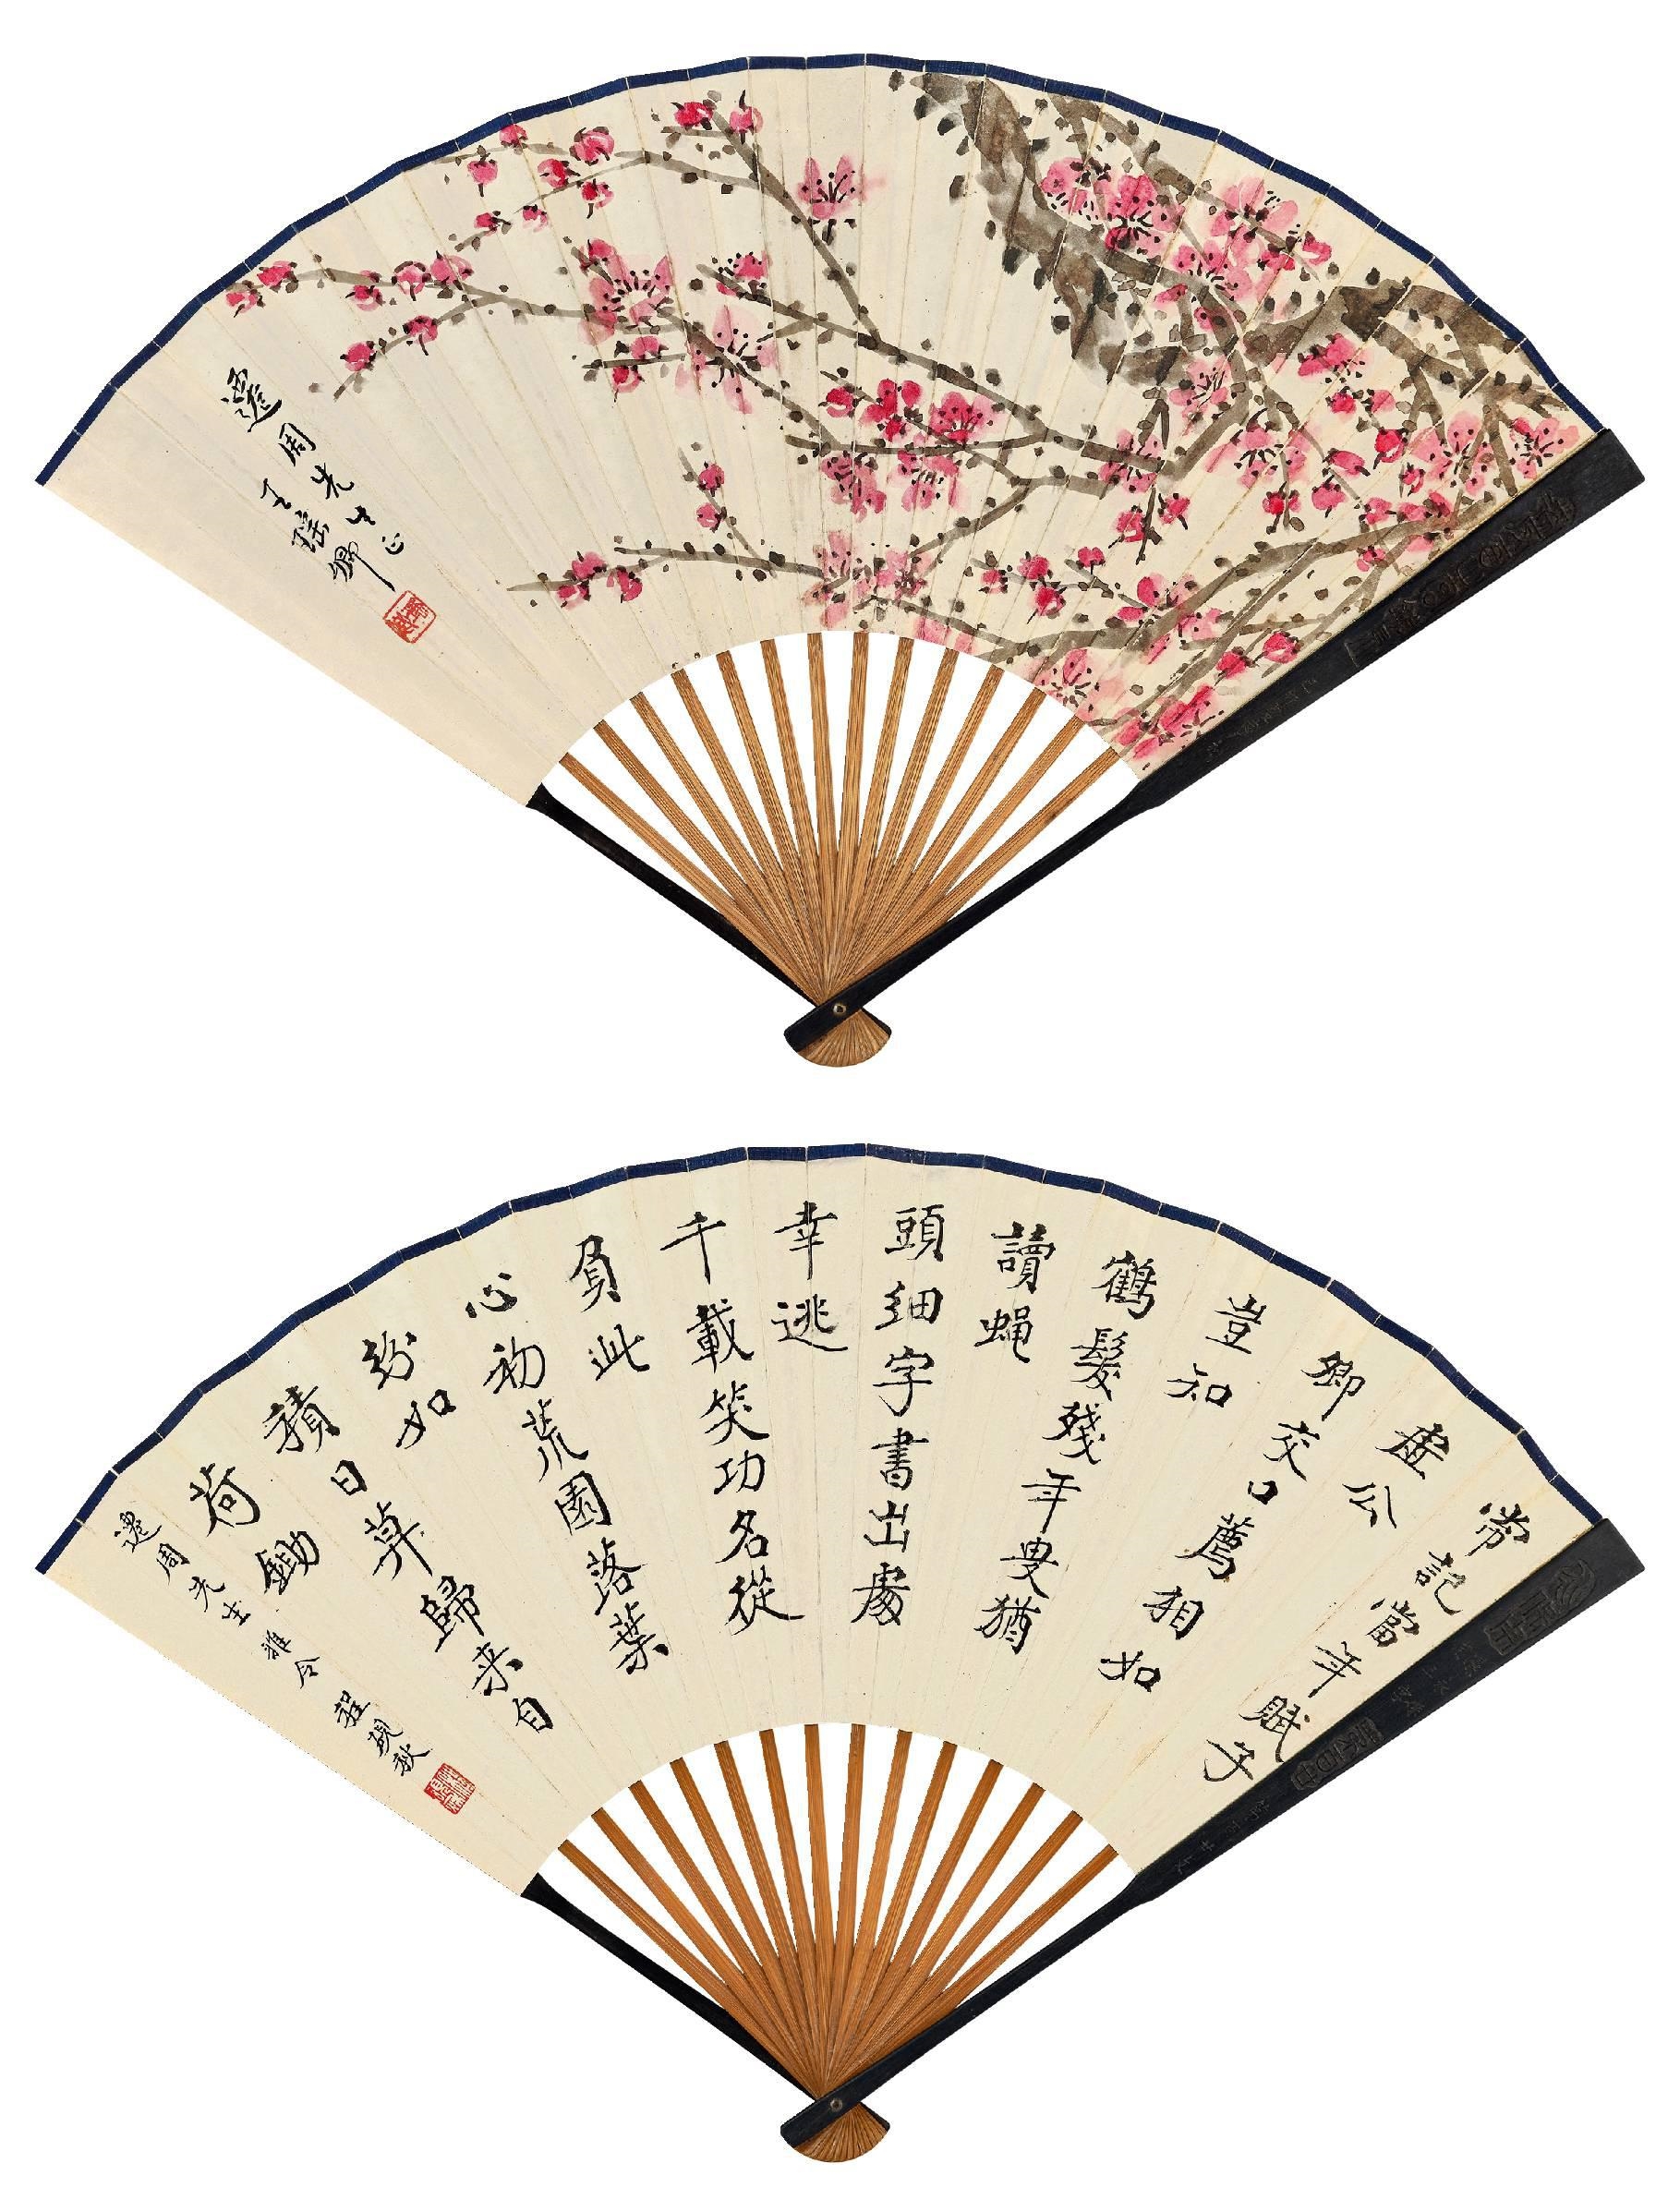 遷周先生正
王瑤卿
常記當年賦子
虛公
卿交口薦相如
豈知
鶴髮殘年叟猶
讀蠅
頭細字書出處
幸逃
千載笑功名從
負此
心初荒園落葉
紛如
積日莫歸来自
荷鋤
遷周先生雅令 程硯秋